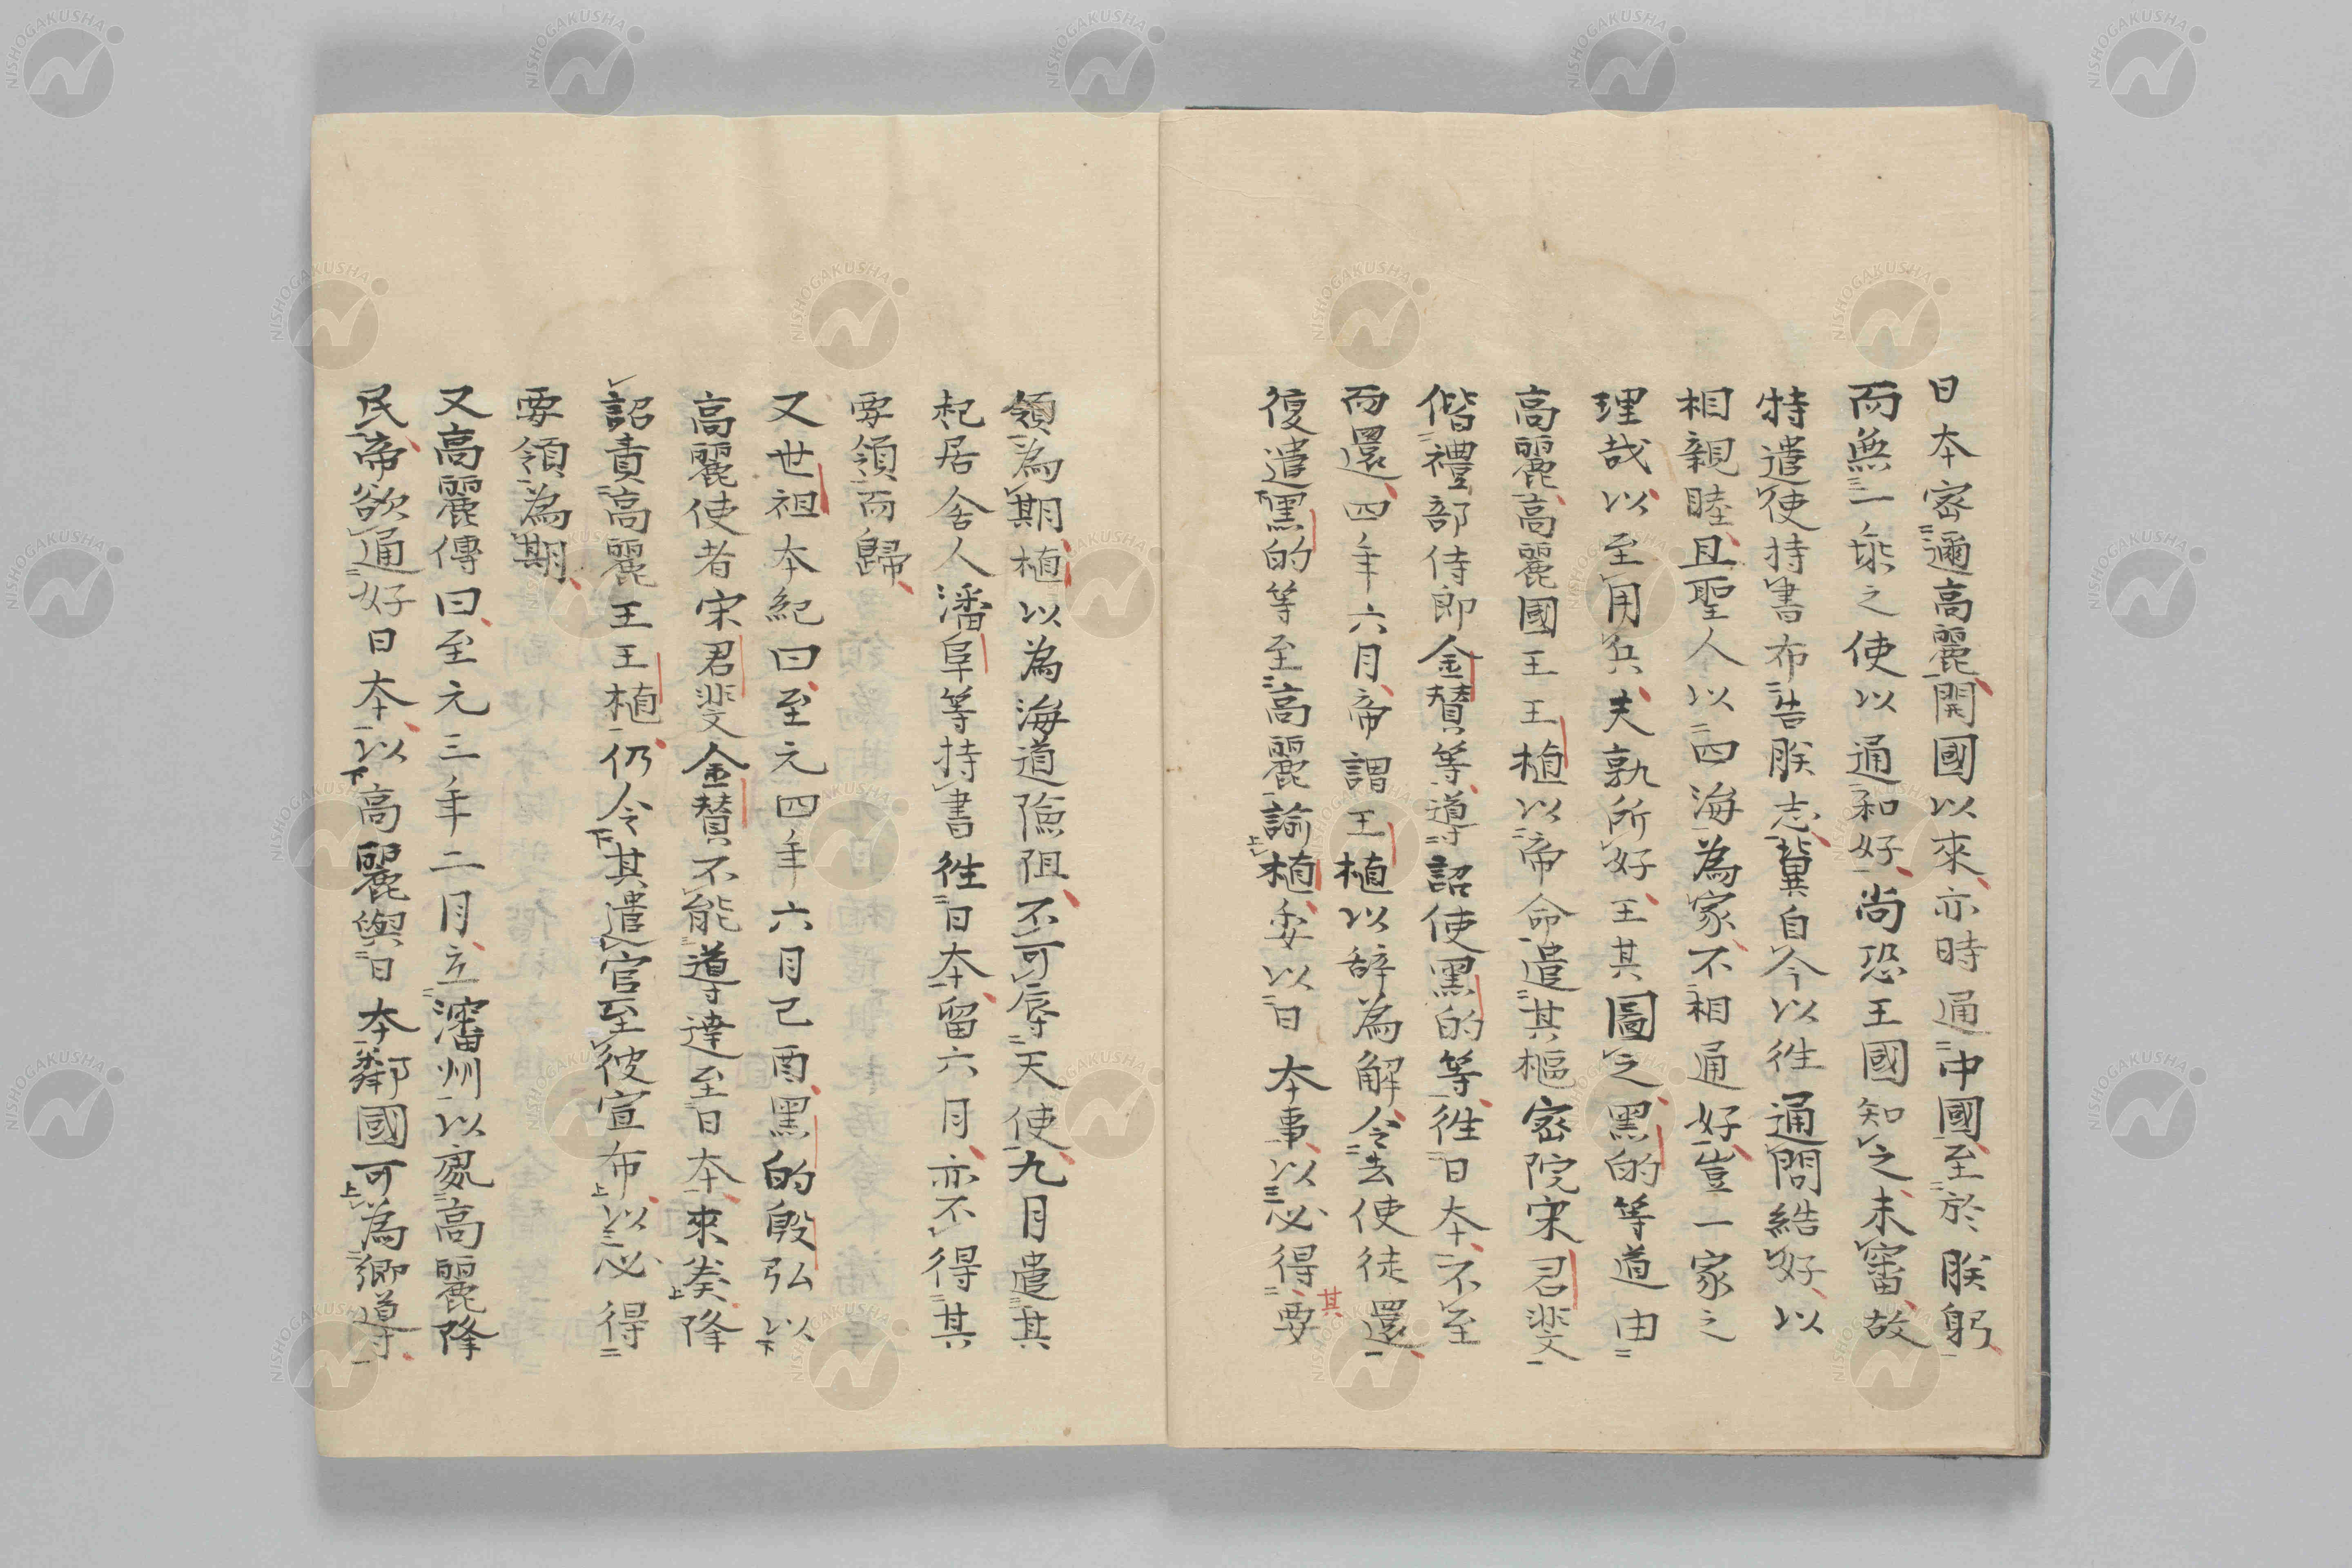 日本密邇高麗開國以來亦時通中國至於朕躬
而無一乗之使以通和好尚恐王國知之未審故
特遣使持書布告朕志冀自今以徃通問結好以
相親睦且聖人以四海為家不相通好豈一家之
理哉以至用兵夫孰所好王其圖之黒的等道由
高麗高麗國王王植以帝命遣其樞密院宋君斐
偕禮部侍郎金賛等導詔使黒的等徃日本不至
而還四年六月帝謂王植以辞為解令去使徒還
復遣黒的等至高麗諭植委以日本事以必得其要
領為期植以為海道險阻不可辱天使九月遣其
起居舎人潘阜等持書徃日本留六月亦不得其
要領而歸
又世祖本紀曰至元四年六月己酉黒的殷弘以
高麗使者宋君斐金賛不能導達至日本來奏降
詔責高麗王王植仍令其遣官至彼宣布以必得
要領為期
又高麗傳曰至元三年二月立瀋州以處高麗降
民帝欲通好日本以高麗與日本鄰國可為鄉導
NISHOGAKUSHA